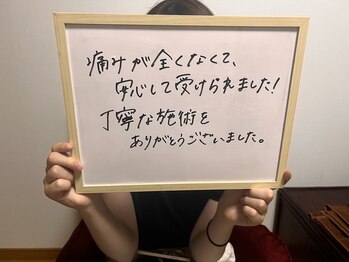 痛みが全くなくて、
安心して受けられました!
丁寧な施術を
ありがとうございました。